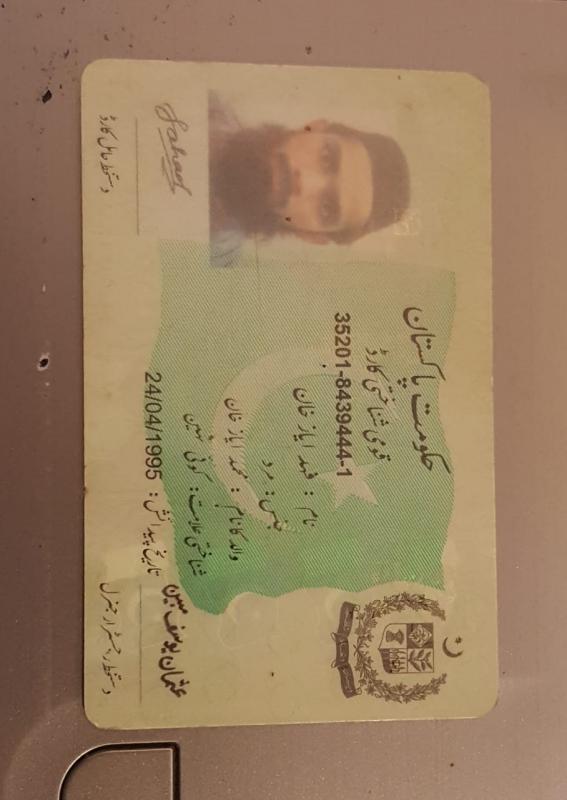 حکومت پاکستان
قومی شناختی کارڈ
35201-8439444-1
نام : فہد ایاز خان
جنس : مرد
والد کا نام : محمد ایاز خان
شناختی علامت : کوئی نہیں
تاریخ پیدائش : 24/04/1995
Fahad
دستخط حامل کارڈ
عثمان یوسف مبین
دستخط رجسٹرار جنرل